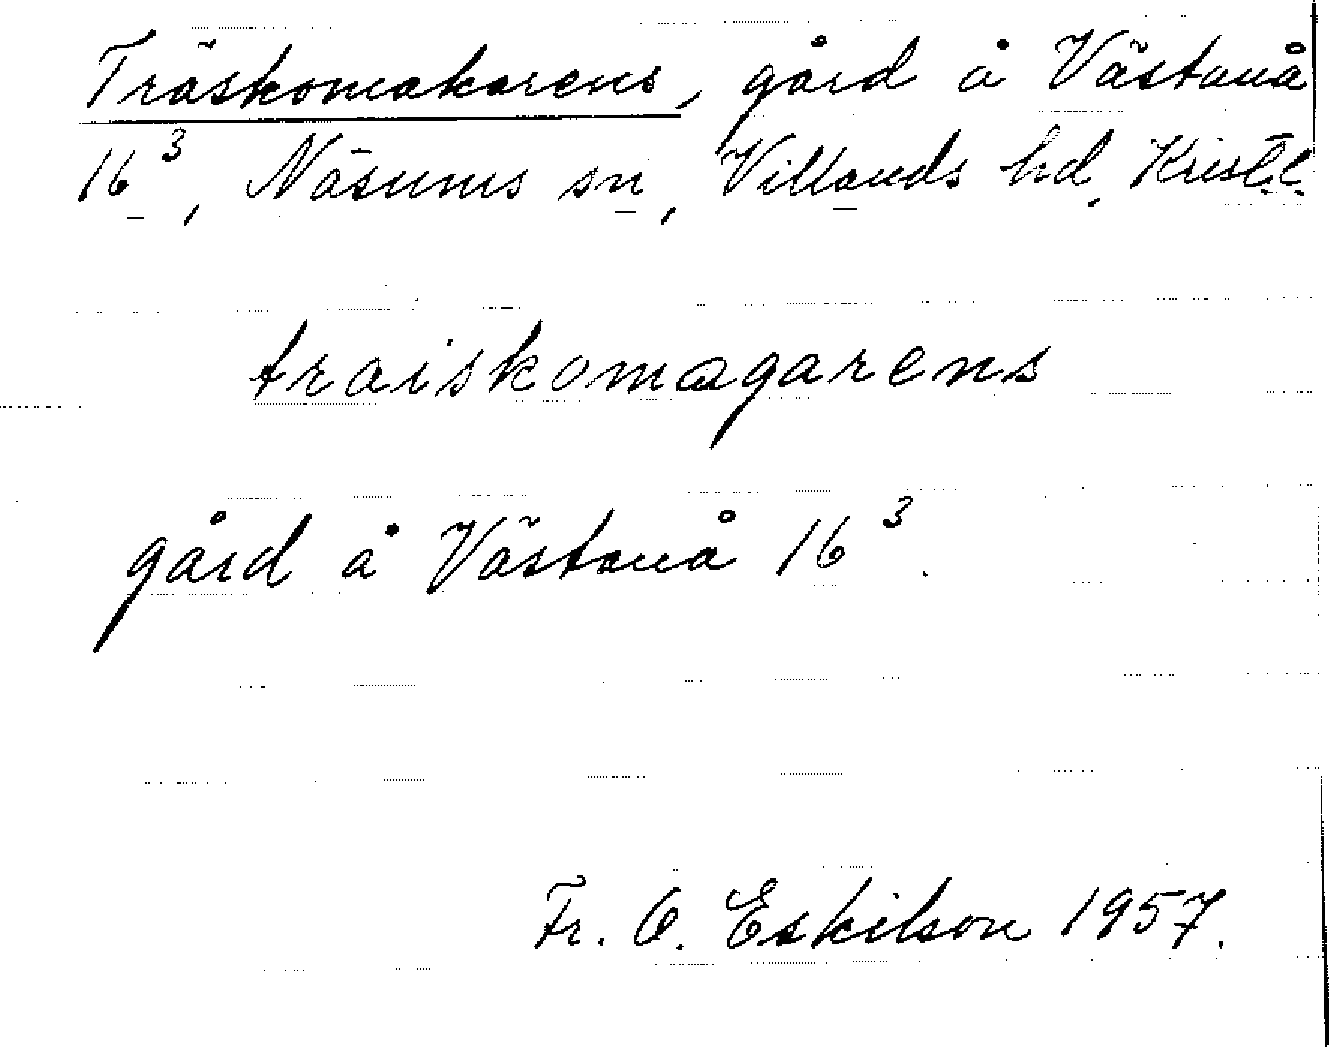 Träskomakarens, gård å Västanå
16³, Näsums sn, Villands hd, Krist.l.
traiskomagarens
gård å Västanå 16³.
Fr. O. Eskilson 1957.